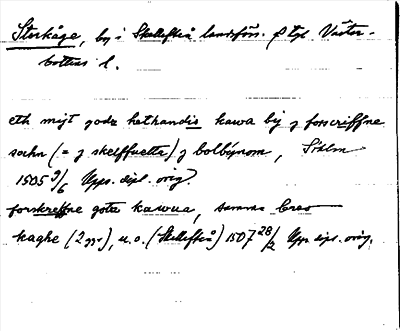 Storkåge, by i Skellefteå landsförs. o tgl. Väster-
bottens l.
eth mijt godz hethandis kawa by j forscriffne
sochn (= j skelffuetta) j bolbynom, Sthlm
1505 9/6 Upps. dipl. orig.
forskreffne gotz kawua, samma brev
kaghe (2 ggr), u.o. (Skellefteå) 1507 28/2 Upps dipl. orig.